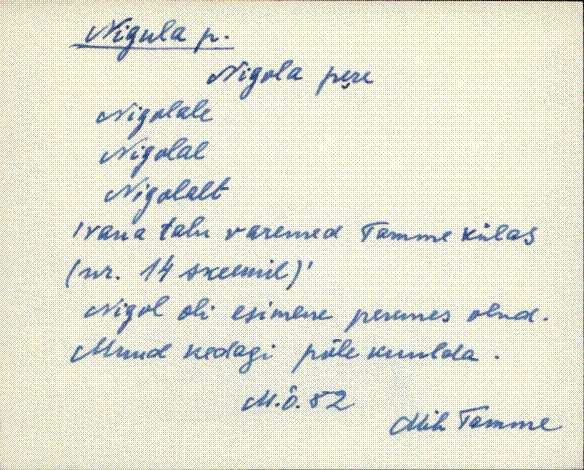 Nigula p.
Nigola pere
Nigolale
Nigolal
Nigolalt
'vana talu varemed Tamme külas
(nr. 14 skeemil)'
Nigol oli esimene peremes olnd.
Muud kedagi põle kuulda.
M.Õ. 82
Mih Tamme